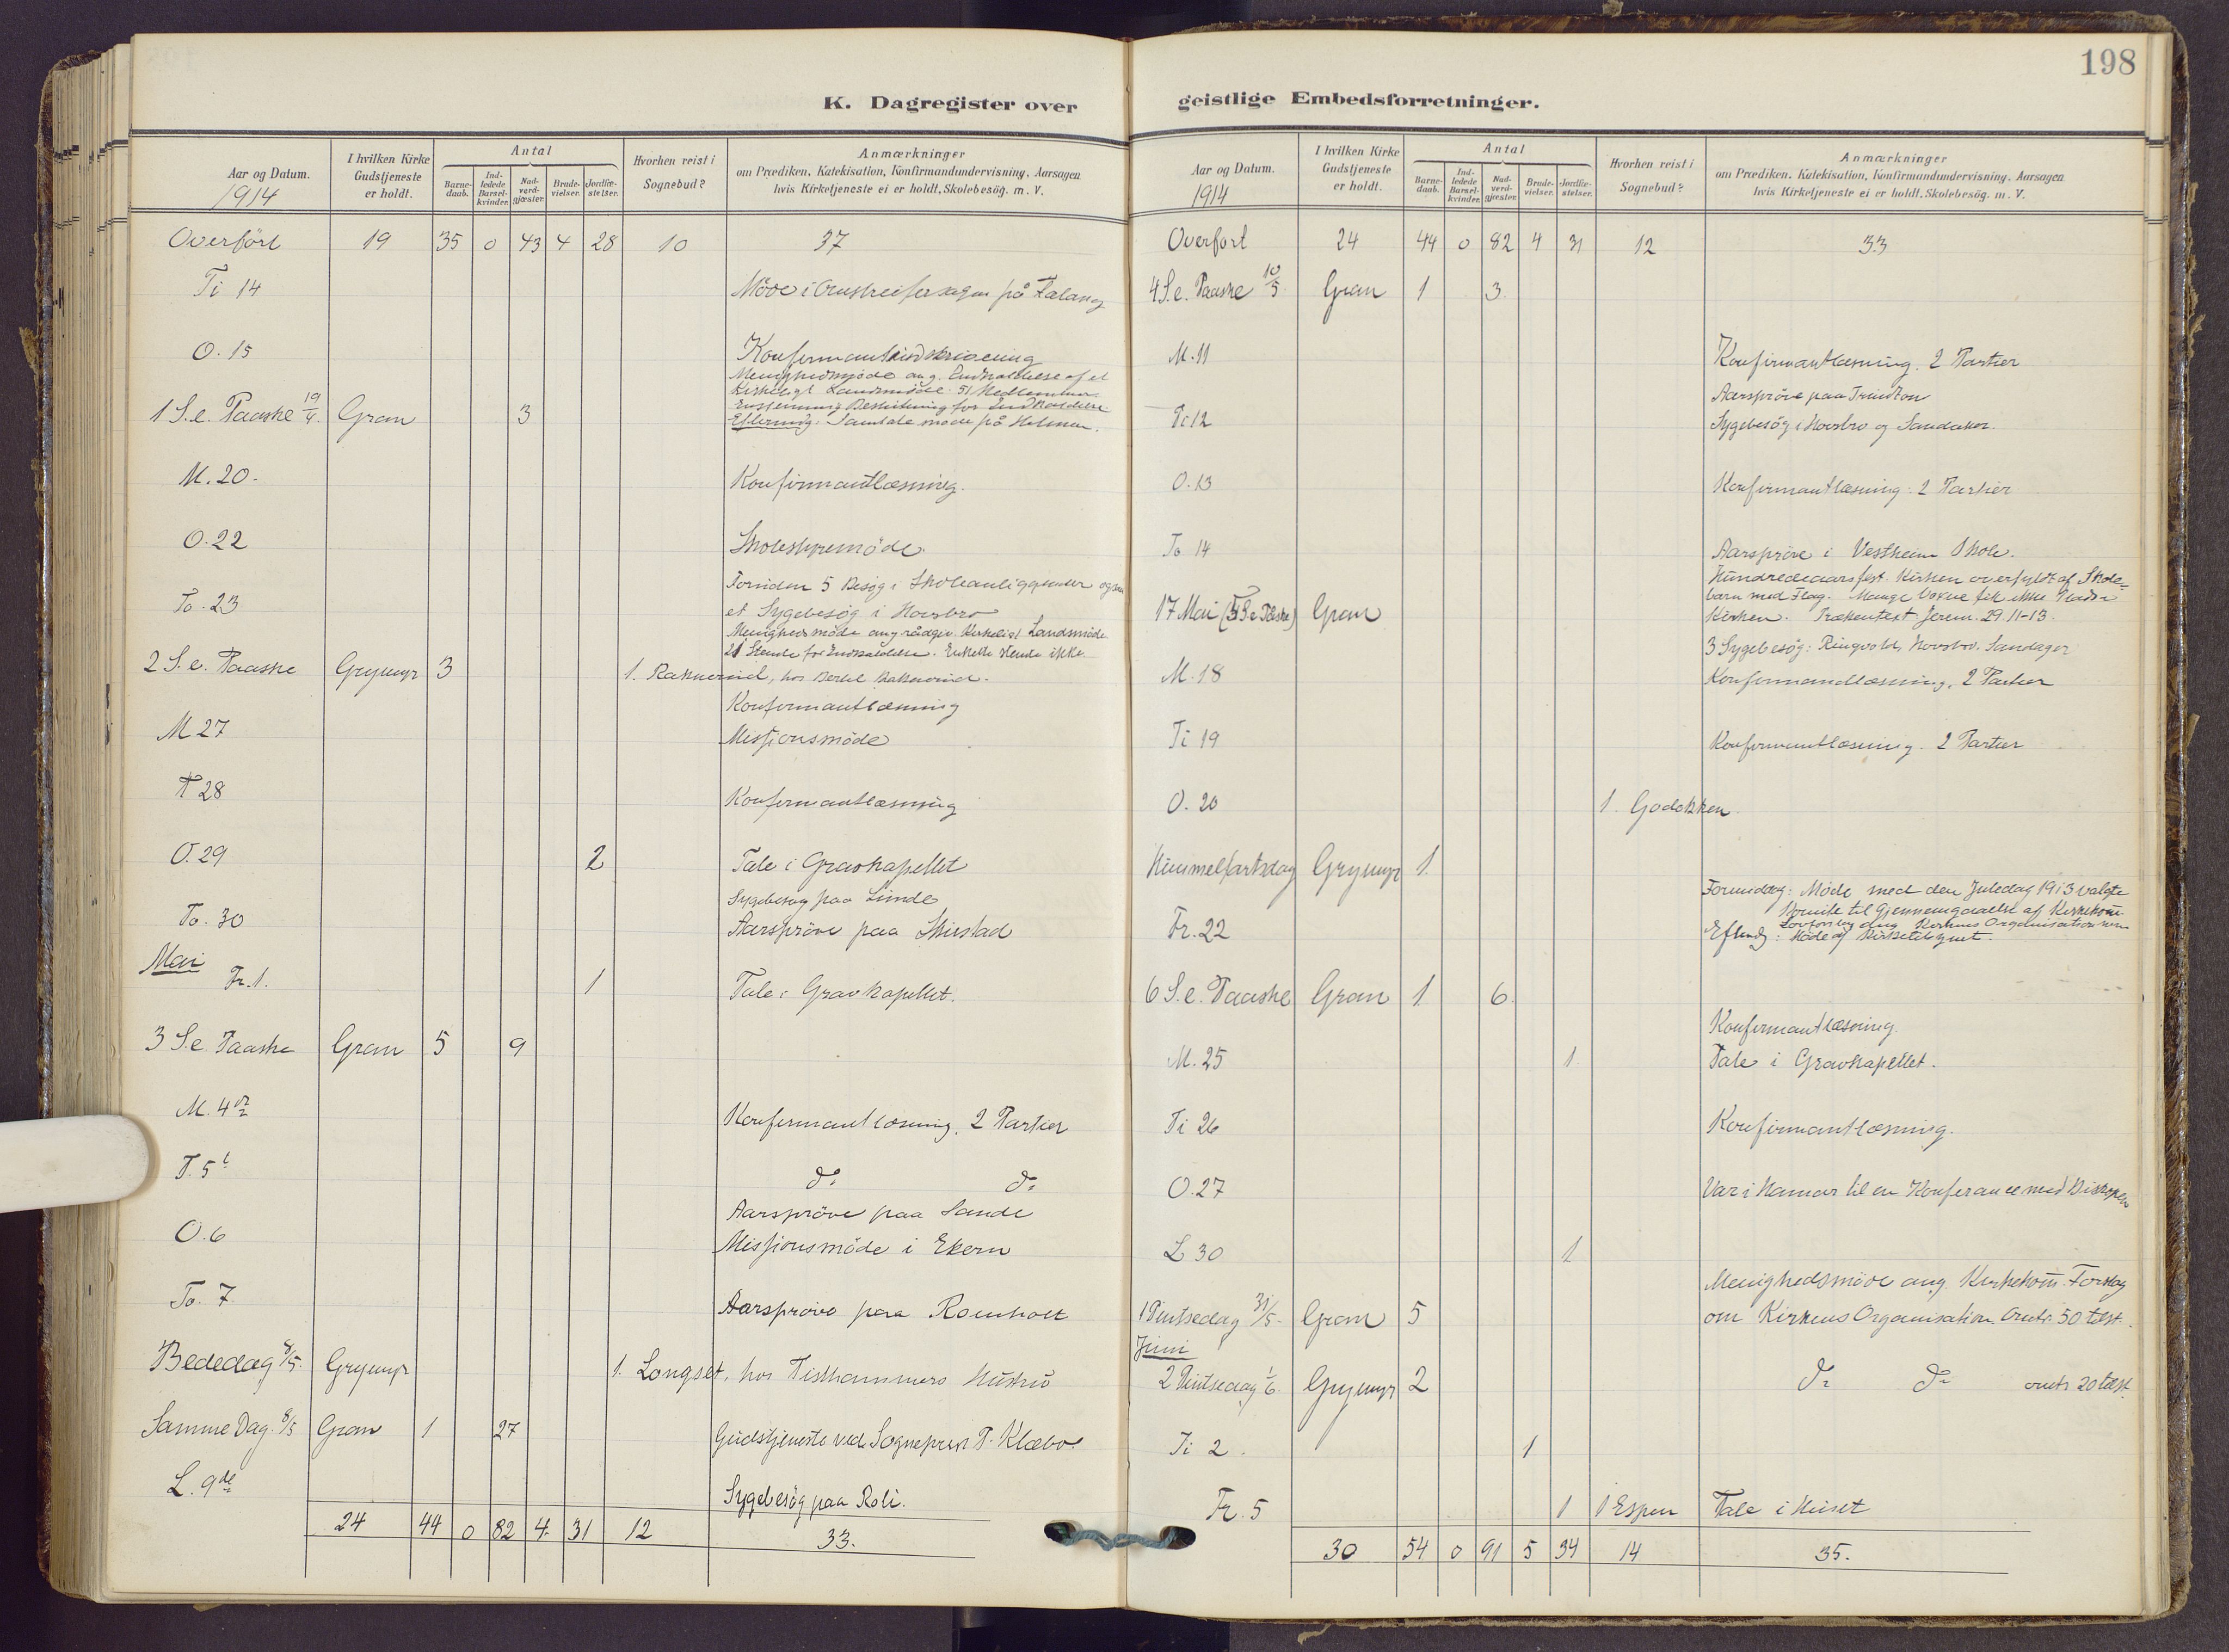 K. Dagregister over
Aar og Datum.
1914
I hvilken Kirke Gudstjeneste er holdt.
Antal
Barne-daab.
Ind-ledede Barsel-kvinder.
Nad-verd-gjæster.
Brude-vielser.
Jordfæ-stelser.
Hvorhen reist i Sognebud?
Anmærkninger
om Prædiken, Katekisation, Konfirmandundervisning, Aarsagen
hvis Kirketjeneste ei er holdt, Skolebesög. m. V.
Overfört 19 35 0 43 4 28 10 37
Ti 14 Möde i på
O. 15 Konfirmantindskrivning
Menighedsmöde ang. Indkaldelse af et
Kirkeligt Landsmöde. 51 Medlemmer
Enstemmig Beslutning for Indkaldelse
1 S.e. Paaske 19/4. Gran 3 Efterm. Samtalemöde på
M. 20. Konfirmantlæsning.
O. 22 Skolestyremöde.
Foruden 5 Besög i Skoleanliggender
To. 23 et Sygebesög i Hovsbro
Menighedsmöde ang. rådgiv. Kirkeligt Landsmöde
21 Stemte for Indkaldelse. Enkelte stemte ikke.
2 S.e. Paaske Grymyr 3 1. Raknerud, hos Bertel Raknerud.
Konfirmantlæsning
M 27 Missionsmöde
T 28 Konfirmantlæsning
O. 29 2 Tale i Gravkapellet
Sygebesög paa Linde
To. 30 Aarspröve paa Skiestad
Mai
Fr. 1. 1 Tale i Gravkapellet.
3 S.e. Paaske Gran 5 9
M. 4de Konfirmantlæsning, 2 Partier
T. 5te do do
Aarspröve paa Sande
O. 6 Missionsmöde i Ekern
To. 7. Aarspröve paa Romholt
Bededag 8/5. Grymyr 1. Longset, hos Tisthammers Hustru
Samme Dag. 8/5 Gran 1 27 Gudstjeneste ved Sogneprest P. Klæbo.
L. 9de Sygebesög paa Roli.
24 44 0 82 4 31 12 33.
198
geistlige Embedsforretninger.
Aar og Datum.
1914
I hvilken Kirke Gudstjeneste er holdt.
Antal
Barne-daab.
Ind-ledede Barsel-kvinder.
Nad-verd-gjæster.
Brude-vielser.
Jordfæ-stelser.
Hvorhen reist i Sognebud?
Anmærkninger
om Prædiken, Katekisation, Konfirmandundervisning, Aarsagen
hvis Kirketjeneste ei er holdt, Skolebesög. m. V.
Overfört 24 44 0 82 4 31 12 33
4 S.e. Paaske 10/5 Gran 1 3.
M. 11 Konfirmantlæsning. 2 Partier
Aarspröve paa Trintom
Ti 12 Sygebesög i Hovsbro og Sandaker.
O. 13 Konfirmantlæsning: 2 Partier
To 14 Aarspröve i Vestheim Skole.
Hundredeaarsfest. Kirken overfyldt af Skole-
barn med Flag. Mange Voxne fik ikke Plads i
17 Mai (5 S.e. Paaske) Gran Kirken. Prækentext Jerem. 29. 11-13.
3 Sygebesög: Ringvold, Hovsbro, Sandager
M. 18 Konfirmandlæsning, 2 Partier
Ti 19 Konfirmantlæsning. 2 Partier
O. 20 1. Godokken.
Himmelfartsdag Grymyr 1.
Formiddag: Möde med den Juledag 1913 valgte
Komite til Gjennemgaaelse af Kirkekom.
Lovforslag ang. Kirkens Organisation
Fr. 22 Eftmdg: Möde af Kirketilsynet.
6 S.e. Paaske Gran 1 6.
Konfirmantlæsning.
M. 25 1. Tale i Gravkapellet.
Ti 26 Konfirmantlæsning.
O. 27 Var i Hamar til en Konferance med Biskopen
L 30 1
Menighedsmöde ang. Kirkekom. Forslag
1 Pintsedag 31/5. Gran 5 om Kirkens Organisation. Omtr. 50 tilst.
Juni
2 Pintsedag 1/6. Grymyr 2 do do omtr 20 tilst.
Ti 2. 1
Fr. 5 1 1 Espen Tale i Huset
30 54 0 91 5 34 14 35.